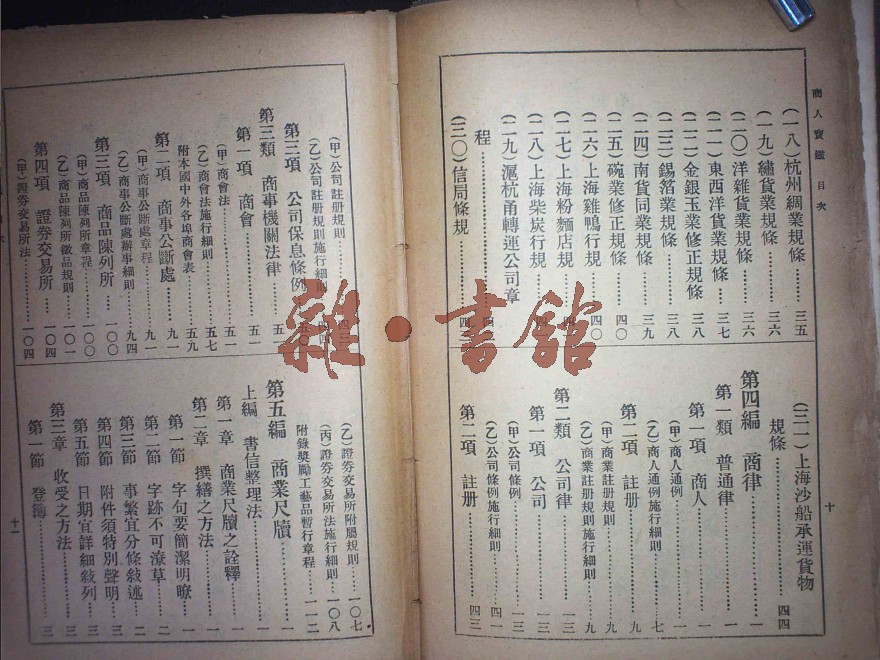 商人寶鑑 目次
十
(一八)杭州綢業規條……三五
(一九)繡貨業規條……三六
(二〇)洋雜貨業規條……三六
(二一)東西洋貨業規條……三七
(二二)金銀玉業修正規條……三八
(二三)錫箔業規條……三八
(二四)南貨同業規條……三九
(二五)碗業修正規條……四〇
(二六)上海雞鴨行規……四〇
(二七)上海粉麵店規……四
(二八)上海柴炭行規……四
(二九)滬杭甬轉運公司章
程……四
(三〇)信局條規……四
(三一)上海沙船承運貨物
規條……四四
第四編 商律
第一類 普通律……一
第一項 商人……一
(甲)商人通例……一
(乙)商人通例施行細則……七
第二項 註册……九
(甲)商業註册規則……九
(乙)商業註册規則施行細則……九
第二類 公司律……一三
第一項 公司……一三
(甲)公司條例……一三
(乙)公司條例施行細則……四一
第二項 註册……四三
(甲)公司註册規則……四三
(乙)公司註册規則施行細則……四四
第三項 公司保息條例……五〇
第三類 商事機關法律……五一
第一項 商會……五一
(甲)商會法……五一
(乙)商會法施行細則……五七
附本國中外各埠商會表……五九
第二項 商事公斷處……九一
(甲)商事公斷處章程……九一
(乙)商事公斷處辦事細則……九四
第三項 商品陳列所……一〇〇
(甲)商品陳列所章程……一〇〇
(乙)商品陳列所徵品規則……一〇一
第四項 證券交易所……一〇四
(甲)證券交易所法……一〇四
(乙)證券交易所附屬規則……一〇七
(丙)證券交易所法施行細則……一〇八
附錄獎勵工藝品暫行章程……一一二
第五編 商業尺牘
上編 書信整理法……一
第一章 商業尺牘之詮釋……一
第二章 撰繕之方法……一
第一節 字句要簡潔明瞭……一
第二節 字跡不可潦草……二
第三節 事繁宜分條敍述……二
第四節 附件須特別聲明……二
第五節 日期宜詳細敍列……三
第三章 收受之方法……三
第一節 登簿……三
十一
雜·書館